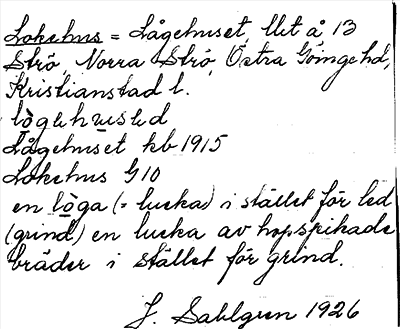 Lokehus = Lågehuset, Ut å 13
Strö, Norra Strö, Östra Göingehd,
Kristianstad l.
lògehusəd
Lågehuset kb 1915
Lokehus G10
en lòga (= lucka) i stället för led
(grind) en lucka av hopspikade
bräder i stället för grind.
J. Sahlgren 1926